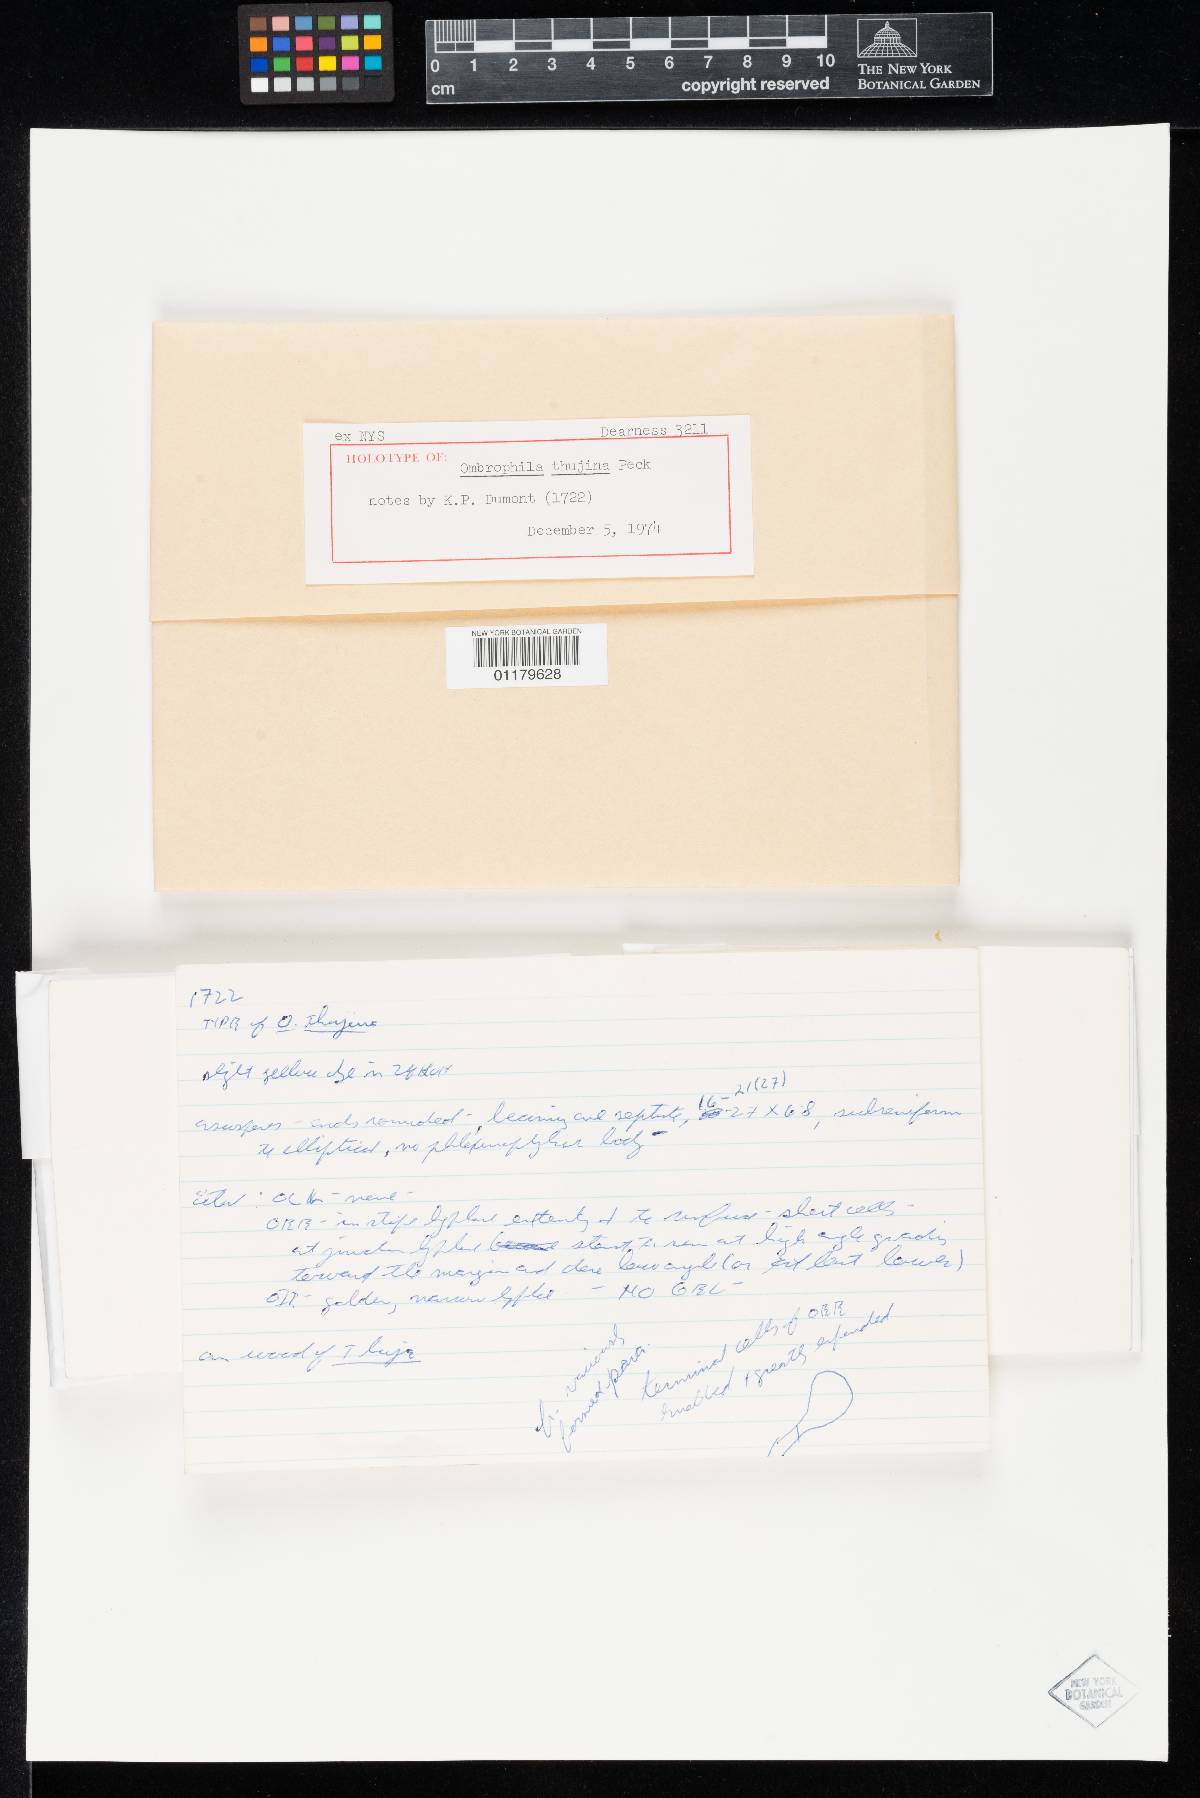 0 1 2 3 4 5 6 7 8 9 10
cm
copyright reserved
THE NEW YORK
BOTANICAL GARDEN
ex NYS Dearness 3211
HOLOTYPE OF: Ombrophila thujina Peck
notes by K.P. Dumont (1722)
December 5, 1974
NEW YORK BOTANICAL GARDEN
01179628
1722
TYPE of O. thujina
slight yellow dye in
21(27)
ascospores - ends rounded -, becoming one septate, 16- 27 X 6-8, subreniform
to elliptical, no body -
- none -
OEE - in stipe hyphae extending to the surface - short cells -
at junction hyphae start to run at high angle grading
toward the margin and low angle (or at least lower)
golden, narrow hyphae - NO GEL -
on wood of Thuja
variously
formed para.
terminal cells of OEE
+ greatly expanded
NEW YORK
BOTANICAL
GARDEN